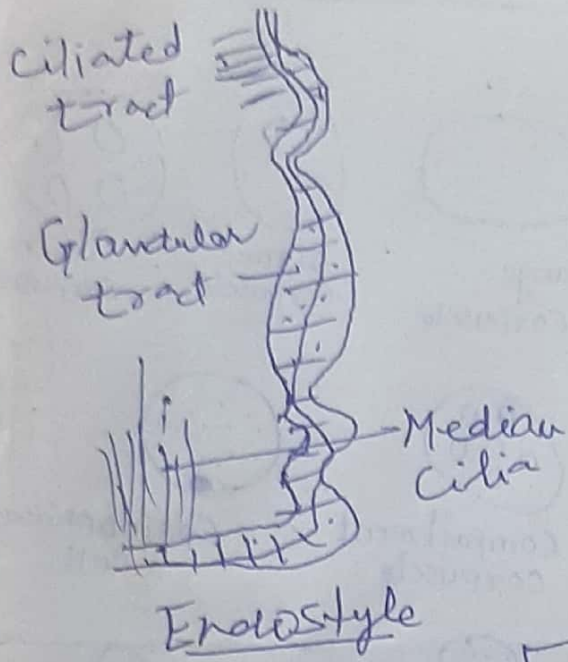 Ciliated
tract
Glandular
tract
Median
cilia
Endostyle